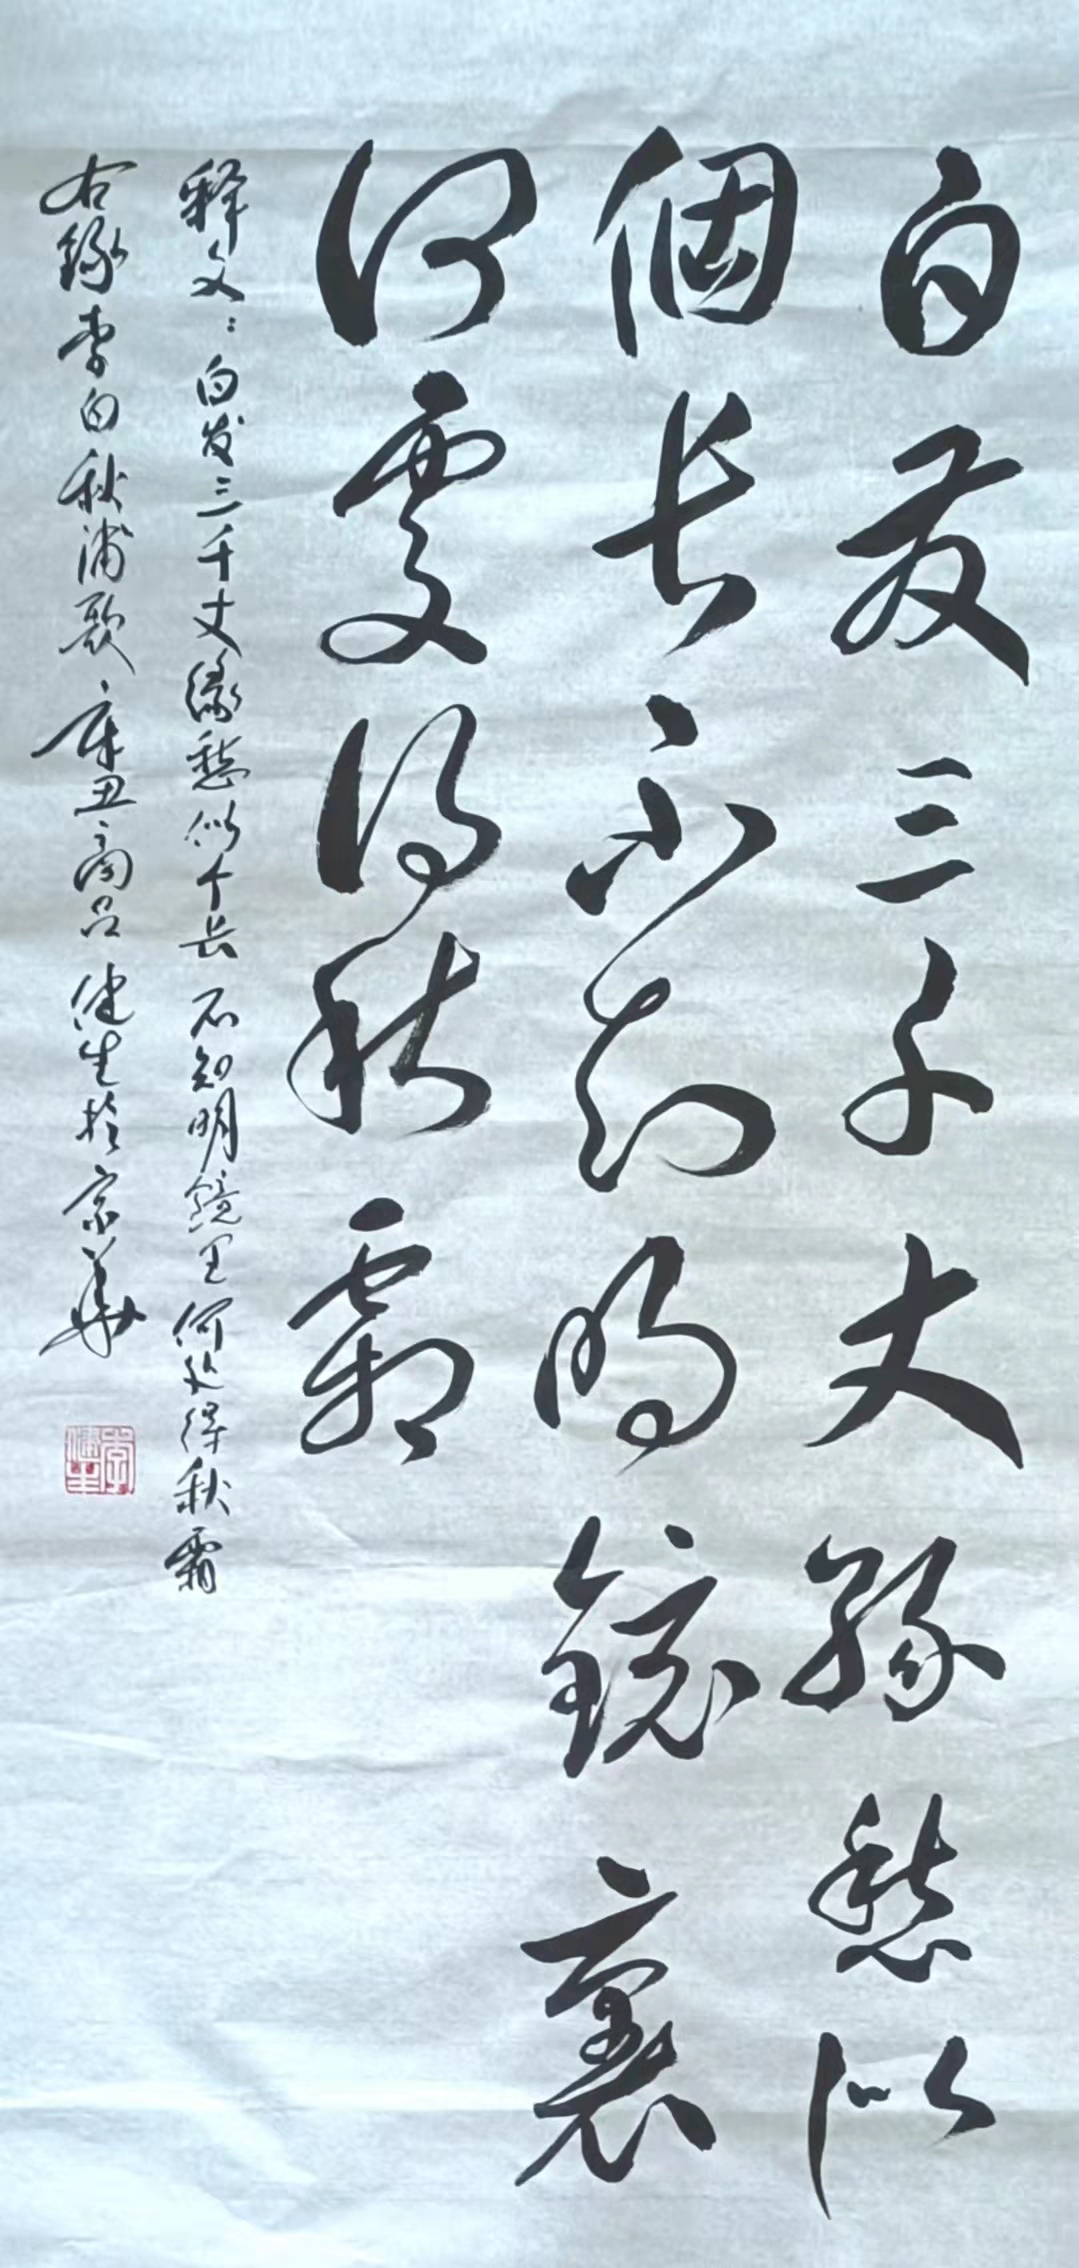 白发三千丈緣愁似
個長不知明鏡裏
何處得秋霜
释文：白发三千丈缘愁似个长 不知明镜里 何处得秋霜
右録李白秋浦歌 辛丑商吕健生於京華